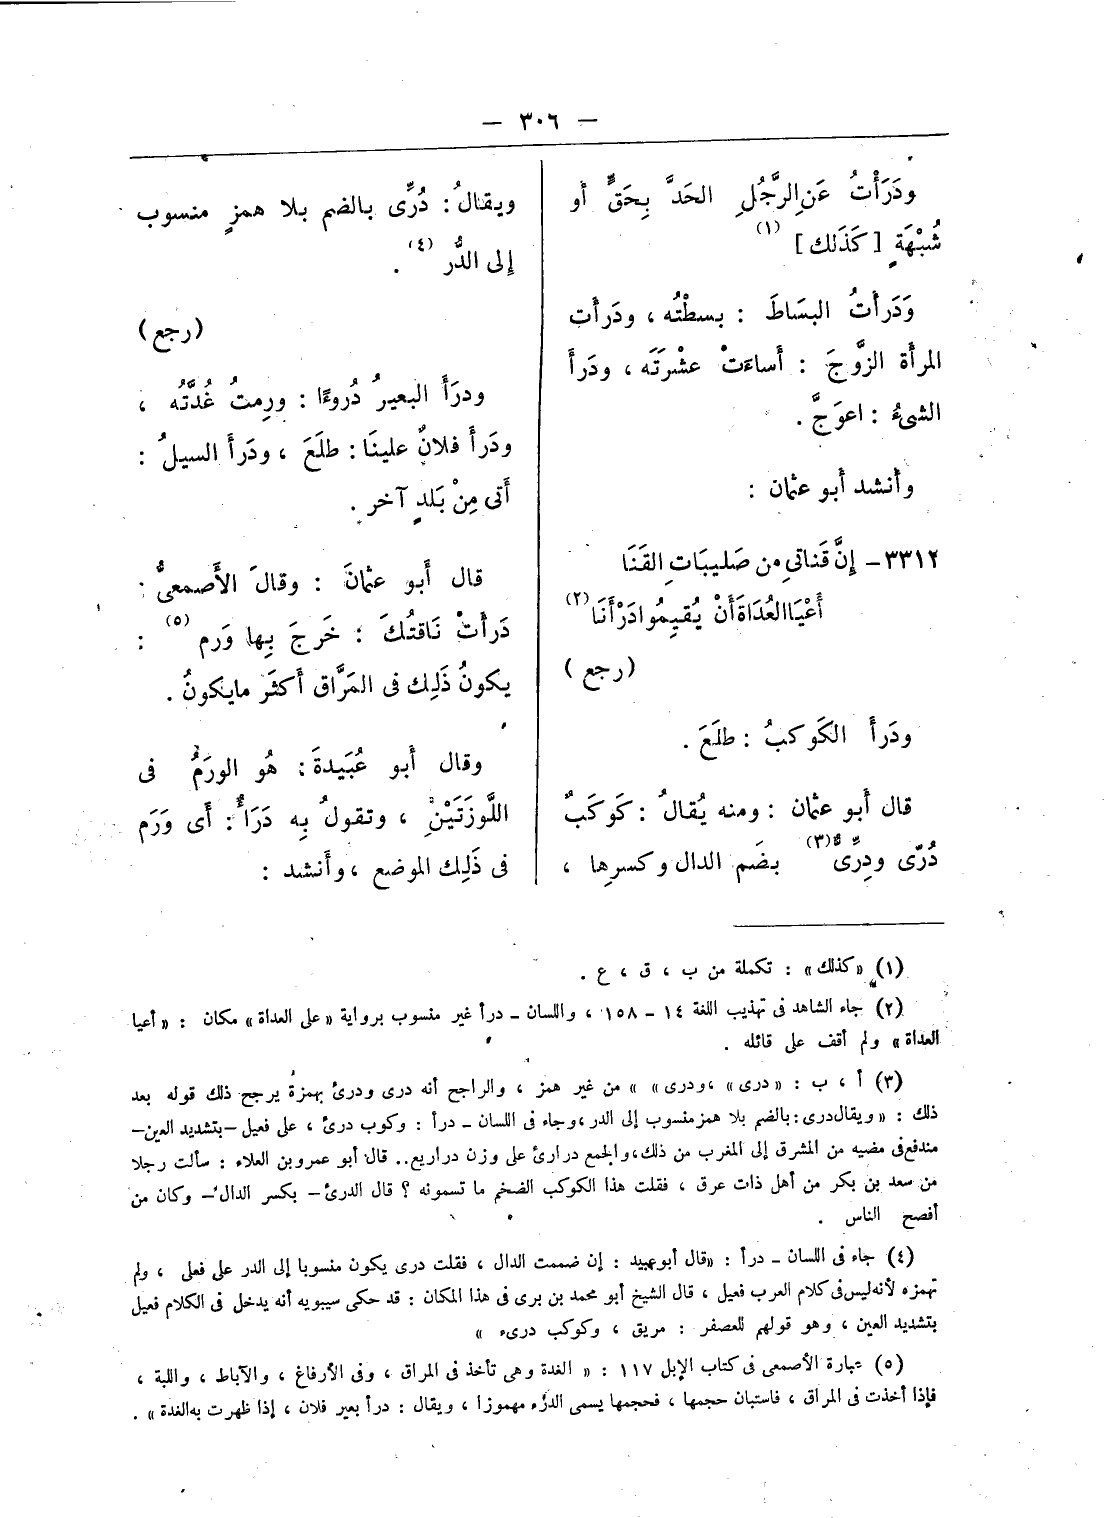 — ٣٠٦ —
ودَرَأْتُ عَنِ الرَّجُلِ الحَدَّ بِحَقٍّ أو
شُبْهَةٍ [ كَذَلك ] (١)
وَدَرَأتُ البسَاطَ : بسطْتُه ، ودَرأت
المرأة الزَّوجَ : أَساءَتْ عشْرَتَه ، ودَرأَ
الشىءُ : اعوَجَّ .
وأنشد أبو عثمان :
٣٣١٢ – إنَّ قَناتىِ من صَليبَاتِ القَنَا
أَعْيَا العُدَاةَ أَنْ يُقيِمُوا دَرْأَنَا (٢)
( رجع )
ودَرأ الكَوكبُ : طلَعَ .
قال أَبو عثمان : ومنه يُقالُ : كَوكَبٌ
دُرّى ودِرِّىٌ (٣) بضَم الدال وكسرِها ،
ويقالُ : دُرِّى بالضم بلا همزٍ منسوب
إلى الدُّر (٤) .
( رجع )
ودرَأَ البعيرُ دُروءًا : ورِمتُ غُدَّتُه ،
ودَرأَ فلانٌ علينَا : طلَعَ ، ودَرأَ السيلُ :
أَتى مِنْ بَلدٍ آخر .
قال أَبو عثمانَ : وقالَ الأَصمعىُّ :
دَرأتْ نَاقتُكَ : خَرجَ بِها وَرم (٥) :
يكونُ ذَلِك فى المَرَّاق أَكثَر مايكونُ .
وقال أَبو عُبَيدةَ : هُو الورَمُ فى
اللَّوزَتَيْنِ ، وتقولُ بِه دَرَأٌ : أَى وَرَم
فى ذَلِكَ الموضع ، وأَنشد :
(١) «كذلك» : تكملة من ب ، ق ، ع .
(٢) جاء الشاهد فى تهذيب اللغة ١٤ – ١٥٨ ، واللسان – درأ غير منسوب برواية «على العداة» مكان : «أعيا
العداة» ولم أقف على قائله .
(٣) أ ، ب : «درى» ، «ودرى» من غير همز ، والراجح أنه درى ودرئ بهمزة يرجح ذلك قوله بعد
ذلك : «ويقال درى : بالضم بلا همز منسوب إلى الدر ، وجاء فى اللسان – درأ : وكوب درئ ، على فعيل – بتشديد العين –
مندفع فى مضيه من المشرق إلى المغرب من ذلك، والجمع درارئ على وزن دراريع.. قال أبو عمرو بن العلاء : سألت رجلا
من سعد بن بكر من أهل ذات عرق ، فقلت هذا الكوكب الضخم ما تسمونه ؟ قال الدرئ – بكسر الدال – وكان من
أفصح الناس .
(٤) جاء فى اللسان – درأ : «قال أبو عبيد : إن ضممت الدال ، فقلت درى يكون منسوبا إلى الدر على فعلى ، ولم
تهمزه لأنه ليس فى كلام العرب فعيل ، قال الشيخ أبو محمد بن برى فى هذا المكان : قد حكى سيبويه أنه يدخل فى الكلام فعيل
بتشديد العين ، وهو قولهم للعصفر : مريق ، وكوكب درىء »
(٥) عبارة الأصمعى فى كتاب الإبل ١١٧ : « الغدة وهى تأخذ فى المراق ، وفى الأرفاغ ، والآباط ، واللبة ،
فإذا أخذت فى المراق ، فاستبان حجمها ، فحجمها يسمى الدرْء مهموزا ، ويقال : درأ بعير فلان ، إذا ظهرت به الغدة » .